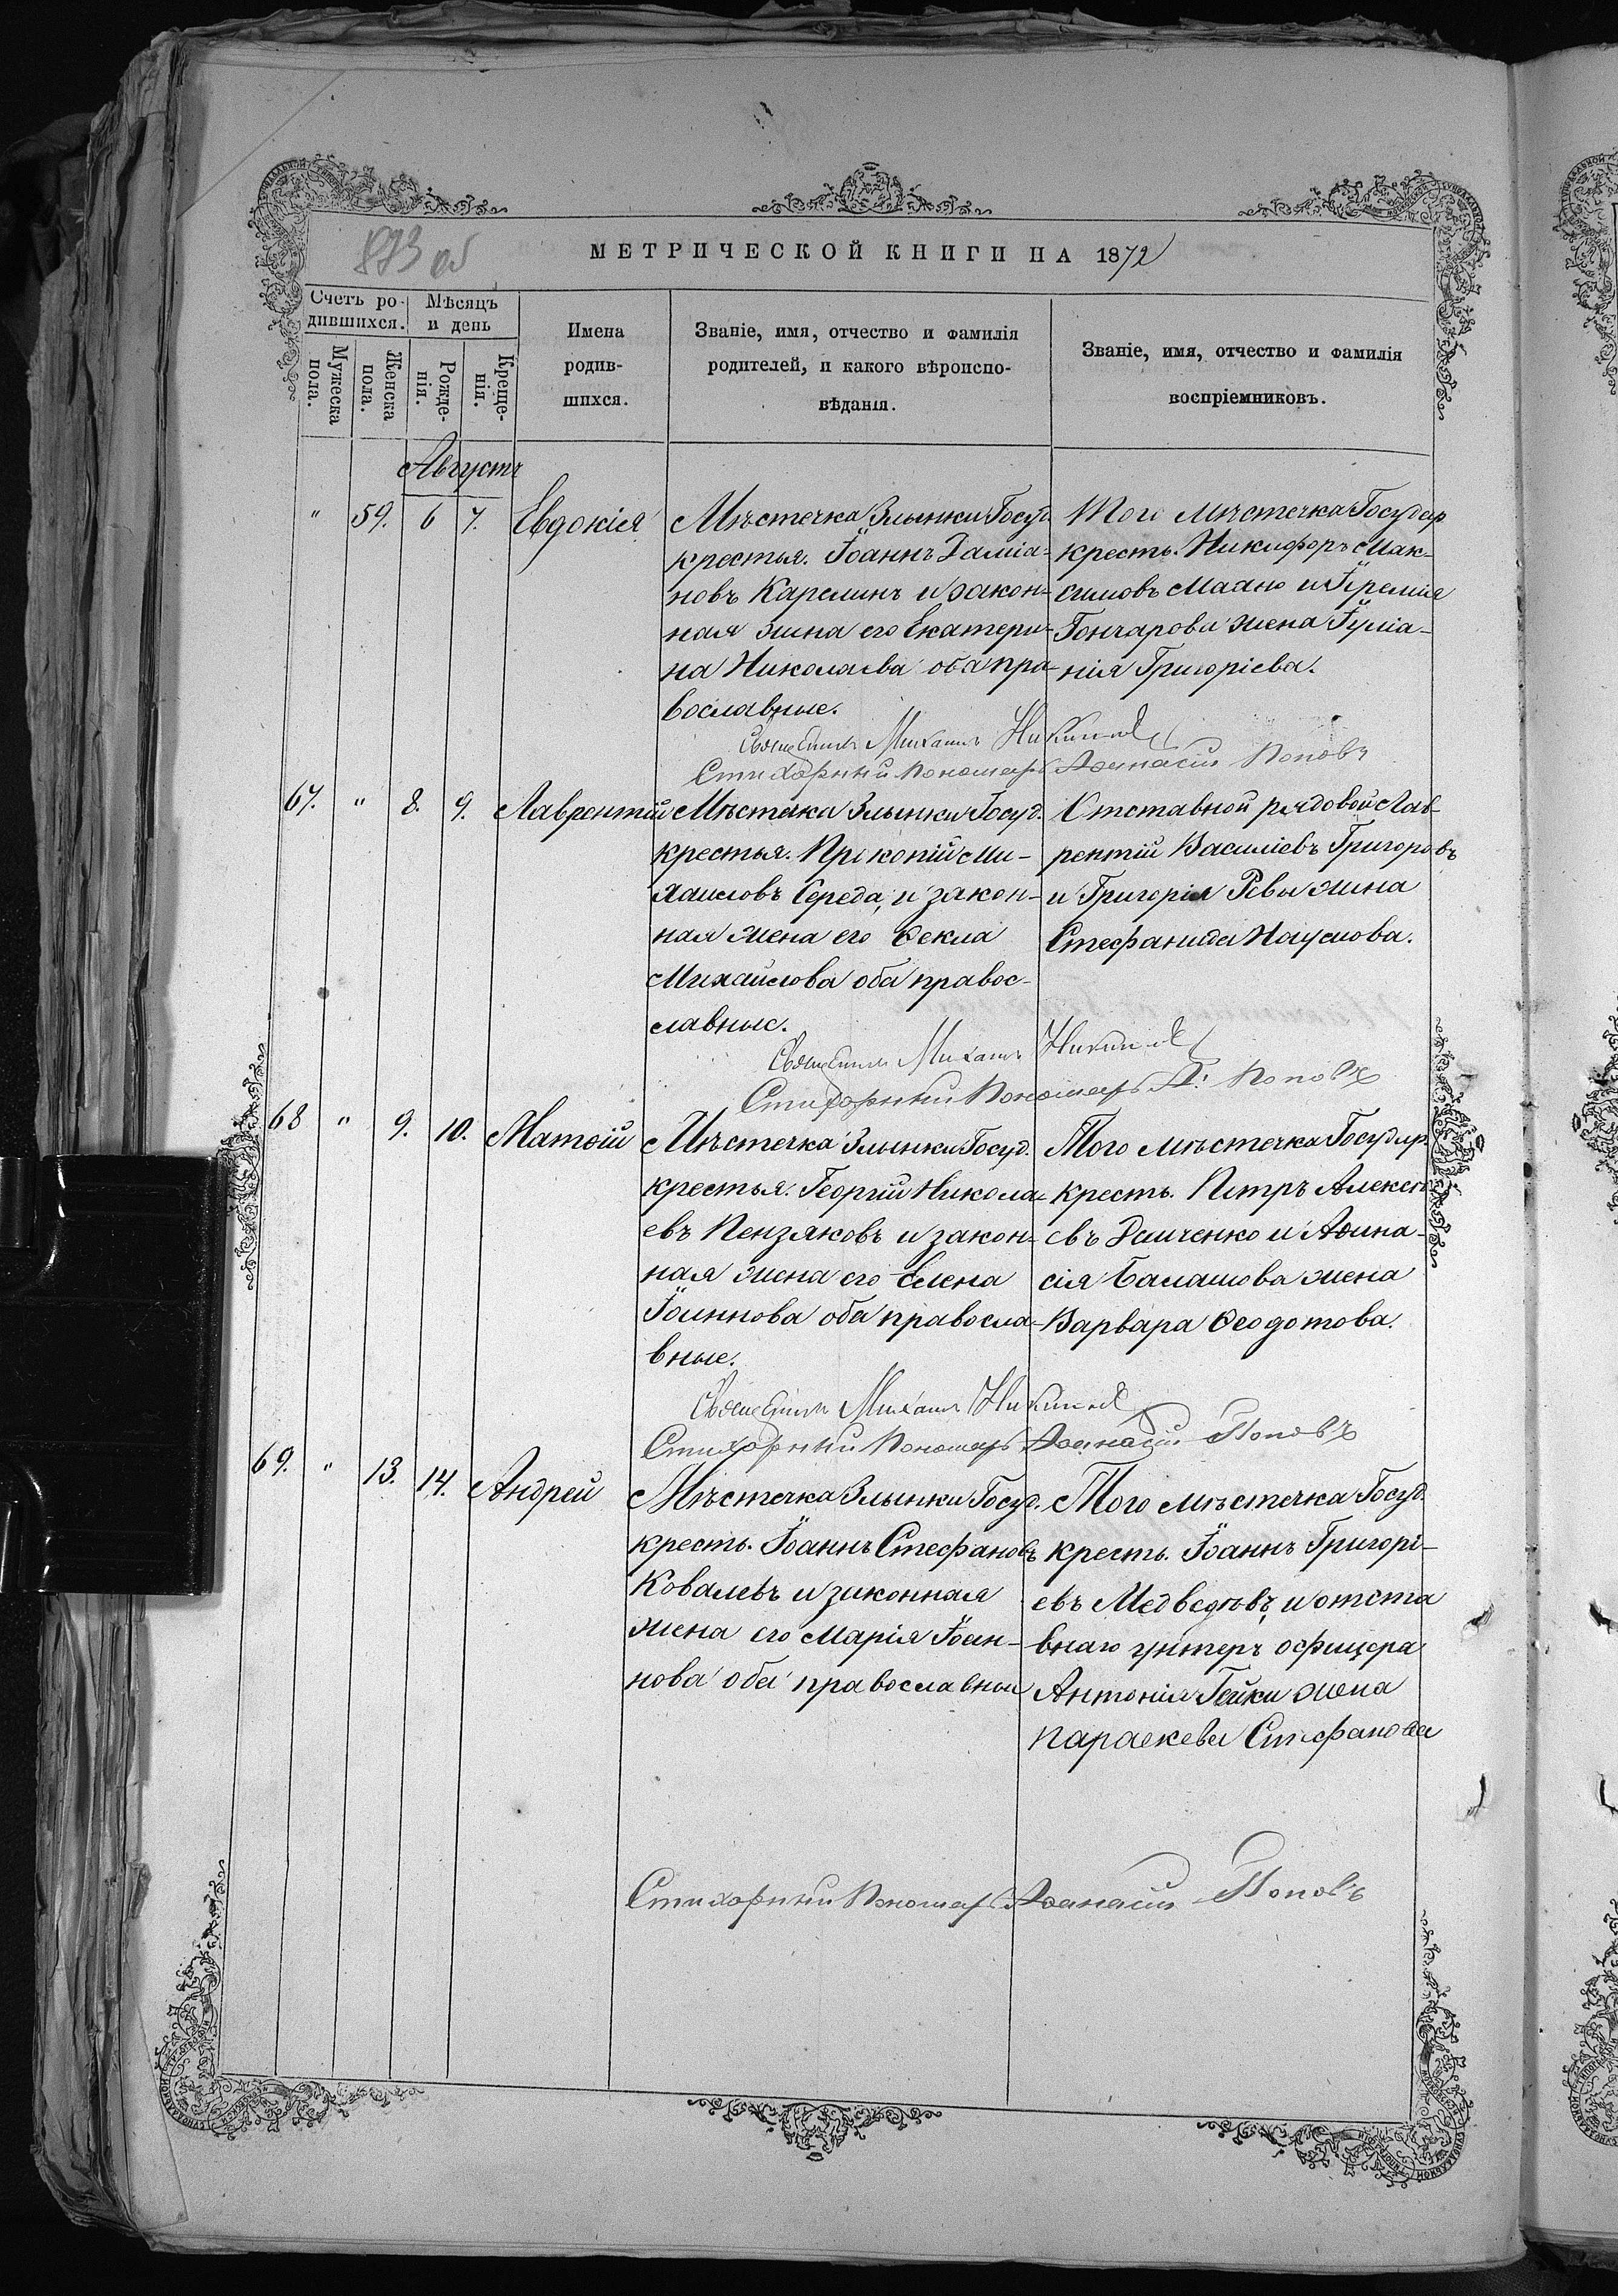 893 об
МЕТРИЧЕСКОЙ КНИГИ НА 1872
Счетъ ро-
дившихся.
Мѣсяцъ
и день
Мужеска
пола.
Женска
пола.
Рожде-
нія.
Креще-
нія.
Имена
родив-
шихся.
Званіе, имя, отчество и фамилія
родителей, и какого вѣроиспо-
вѣданія.
Званіе, имя, отчество и фамилія
воспріемниковъ.
Августъ
" 59. 6 7. Евдокія
Мѣстечка Злынки Госуд.
крестья. Іоаннъ Даміа-
новъ Карелинъ и закон-
ная жена его Екатери-
на Николаева оба пра-
вославные.
Того мѣстечка Государ
кресть. Никифоръ Мак-
симовъ и Іереміи
Гончарова жена Іуліа-
нія Григоріева.
Священникъ Михаилъ
Стихарный Пономарь Аѳанасій Поповъ
67. " 8. 9. Лаврентій
Мѣстечка Злынки Госуд.
крестья. Прокопій Ми-
хаиловъ Середа, и закон-
ная жена его Ѳекла
Михаилова оба правос-
лавные.
Отставной рядовой Лав-
рентій Василіевъ Григоровъ
и Григорія Ревы жена
Стефанида Наумова.
Священникъ Михаилъ
Стихарный Пономарь А. Поповъ
68 " 9. 10. Матѳій
Мѣстечка Злынки Госуд.
крестья. Георгій Никола-
евъ Пензяковъ и закон-
ная жена его Елена
Іоаннова оба правосла-
вные.
Того мѣстечка Государ.
кресть. Петръ Алексѣ-
евъ Демченко и Аѳана-
сія Балашова жена
Варвара Ѳеодотова.
Священникъ Михаилъ
Стихарный Пономарь Аѳанасій Поповъ
69. " 13. 14. Андрей
Мѣстечка Злынки Госуд.
кресть. Іоаннъ Стефановъ
Ковалевъ и законная
жена его Марія Іоан-
нова оба православны
Того мѣстечка Госуд.
кресть. Іоаннъ Григорі-
евъ Медведѣвъ, и отста
внаго унтеръ офицера
Антонія Гейки жена
Параскева Стефанова
Стихарный Пономарь Аѳанасій Поповъ